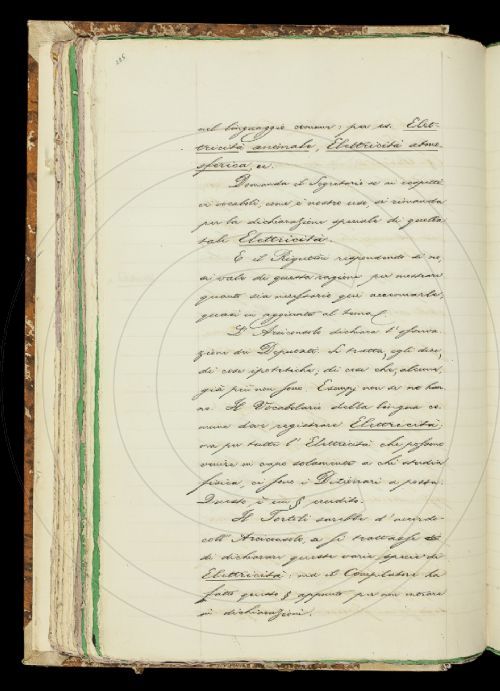 nel linguaggio comune; per es. Elet-
tricità animale, Elettricità atmo
sferica, ec.
Domanda il Segretario se ai rispetti
vi vocaboli, come è nostro uso, si rimanda
per la dichiarazione speciale di quella
tale Elettricità.
E il Rigutini rispondendo di no,
si vale di questa ragione per mostrare
quanto sia necessario qui accennarle,
quasi in aggiunta al tema.
L'Arciconsolo dichiara l'osserva-
zione dei Deputati. Si tratta, egli dice,
di cose ipotetiche; di cose che, alcune,
già più non sono. Esempj non ce ne han
no. Il Vocabolario della lingua co
mune deve registrare Elettricità;
ma per tutte l'Elettricità che possono
venire in capo solamente a chi studia
fisica, ci sono i Dizionarj a posta.
Questo è un § erudito.
Il Tortoli sarebbe d'accordo
coll'Arciconsolo, se si trattasse
di dichiarare queste varie specie di
Elettricità; ma il Compilatore ha
fatto questo § appunto per non entrare
in dichiarazioni.